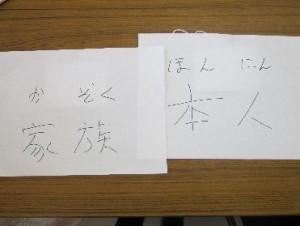 かぞく
家族
ほんにん
本人